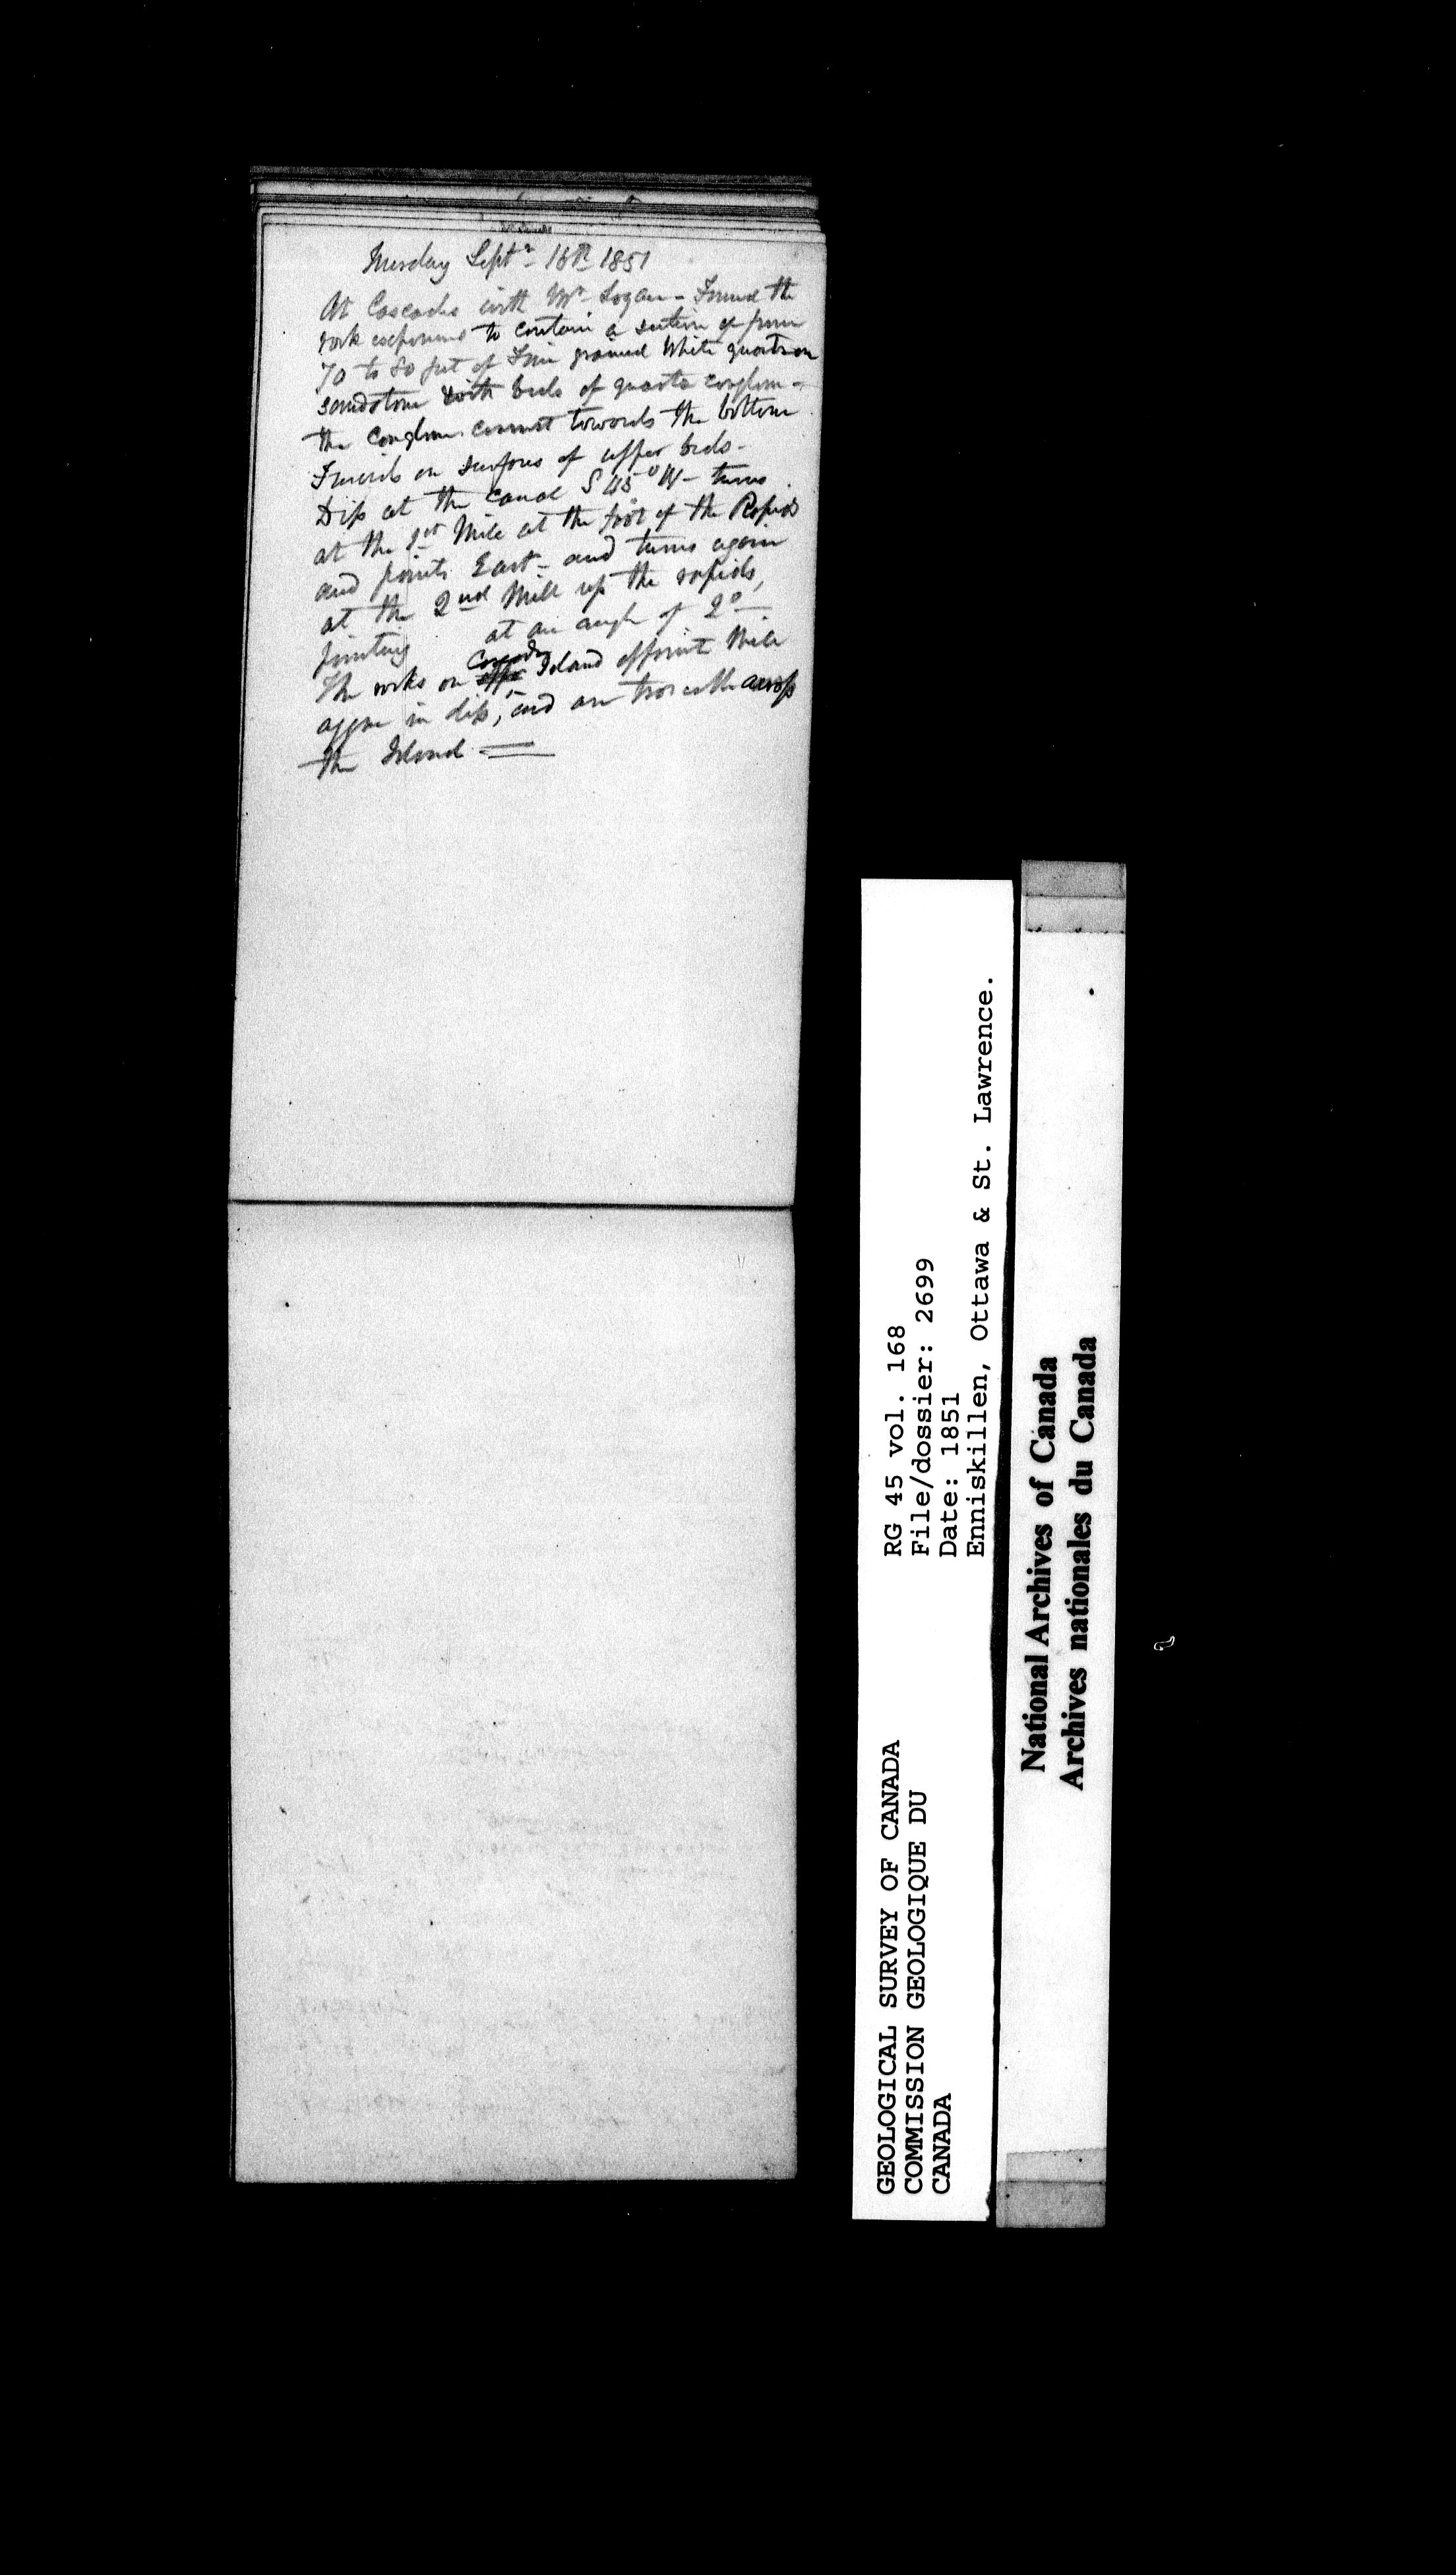 Tuesday Septr 16th 1851
At Cascades with Mr Logan - Found the
rock exposures to contain a section of from
70 to 80 feet of Fine grained White quartzose
sandstone with beds of quartz conglom -
the conglom. towards the bottom
Fucoids on surfaces of upper beds -
Dip at the canal S 45° W - turns
at the 1st Mill at the foot of the Rapids
and points East - and turns again
at the 2nd Mill up the rapids,
pointing at an angle of 2° -
The rocks on Cascades Island opposite Mill
agree in dip, and are traceable across
the Island
RG 45 vol. 168
File/dossier: 2699
Date: 1851
Enniskillen, Ottawa & St. Lawrence.
GEOLOGICAL SURVEY OF CANADA
COMMISSION GEOLOGIQUE DU
CANADA
National Archives of Canada
Archives nationales du Canada